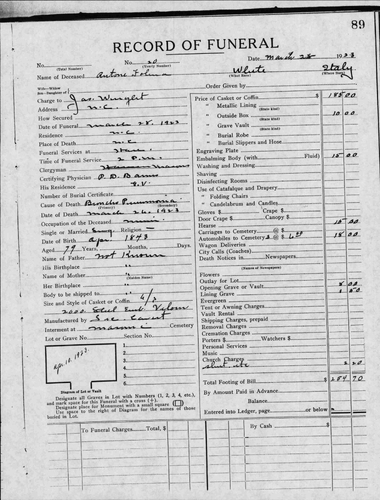 89
RECORD OF FUNERAL
No. No. 20 Date March 28 1923
(Total Number) (Yearly Number)
Name of Deceased Antone White Italy
(What Race) (What Country)
Order Given by
Charge to Jas. Wright
Address N.C.
How Secured
Date of Funeral March 28, 1923
Residence N.C.
Place of Death N.C.
Funeral Services at
Time of Funeral Service 2 P.M.
Clergyman
Certifying Physician
His Residence
Number of Burial Certificate
Cause of Death Pneumonia
Date of Death March 26, 1923
Occupation of the Deceased
Single or Married Sing. Religion
Date of Birth Apr 1843
Aged 79 Years, Months, Days
Name of Father Not Known
His Birthplace
Name of Mother
Her Birthplace
Body to be shipped to
Size and Style of Casket or Coffin
Manufactured by
Interment at Cemetery
Lot or Grave No. Section No.
Apr. 10, 1923
1.
2.
3.
4.
5.
6.
Diagram of Lot or Vault
Designate all Graves in Lot with Numbers (1, 2, 3, 4, etc.),
and mark space for this Funeral with a cross (+).
Designate place for Monument with a small square
Use space to the right of Diagram for the names of those
buried in Lot.
Price of Casket or Coffin $ 185.00
" Metallic Lining
" Outside Box 10 00
" Grave Vault
" Burial Robe
" Burial Slippers and Hose
Engraving Plate
Embalming Body (with Fluid) 15 00
Washing and Dressing
Shaving
Disinfecting Rooms
Use of Catafalque and Drapery
" Folding Chairs
" Candelabrum and Candles
Gloves $ Crape $
Door Crape $ Canopy $
Hearse 15 00
Carriages to Cemetery @ $
Automobiles to Cemetery @ $ 18 00
Wagon Deliveries
Death Notices in Newspapers
(Names of Newspapers)
Flowers
Outlay for Lot
Opening Grave or Vault 8 00
Lining Grave 1 50
Evergreen
Tent or Awning Charges
Vault Rental
Shipping Charges, prepaid
Removal Charges
Cremation Charges
Porters $ Watchers $
Personal Services
Music
Church Charges
2 20
Total Footing of Bill $ 254 70
By Amount Paid in Advance
Balance
Entered into Ledger, page or below
To Funeral Charges, Total $ By Cash $